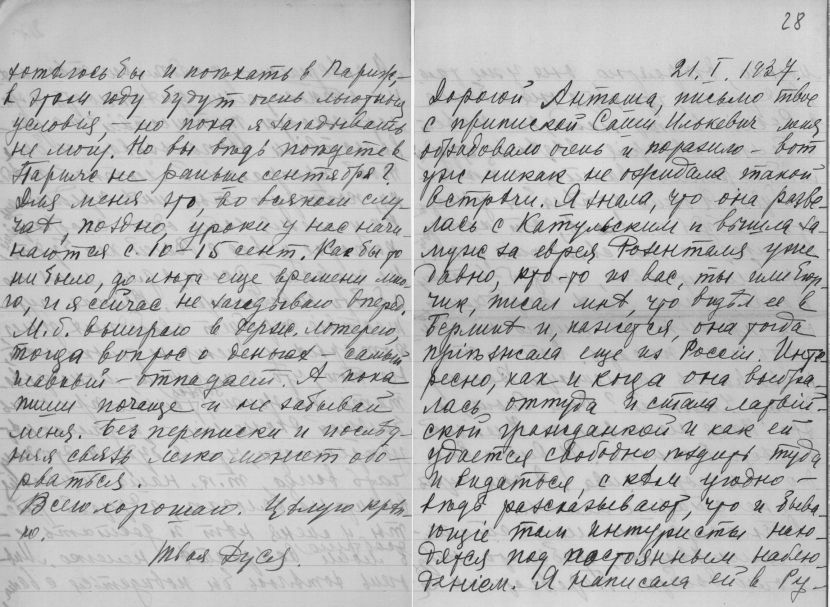 хотѣлось бы и поѣхать в Париж, –
в этом году будут очень льготныя
условія, – но пока я загадывать
не могу. Но вы вѣдь поѣдете в
Париж не раньше сентября?
Для меня это, во всяком слу-
чаѣ, поздно, уроки у нас начи-
наются с 10–15 сент. Как бы то
ни было, до лѣта еще времени мно-
го, и я сейчас не загадываю вперед.
М. б. выиграю в держ. лотерею,
тогда вопрос о деньгах – самый
главный – отпадает. А пока
пиши почаще и не забывай
меня. Без переписки и послѣд-
няя связь легко может обо-
рваться.
Всего хорошаго. Цѣлую крѣп-
ко.
Твоя Дуся.
28
21. I. 1937.
Дорогой Антоша, письмо твое
с припиской Саши Илькевич меня
обрадовало очень и поразило – вот
уж никак не ожидала такой
встрѣчи. Я знала, что она разве-
лась с Катульским и вышла за-
муж за еврея Розенталя уже
давно, кто-то из вас, ты или
чик, писал мнѣ, что видѣл ее в
Берлинѣ и, кажется, она тогда
пріѣзжала еще из Россіи. Инте-
ресно, как и когда она выбра-
лась оттуда и стала латвій-
ской гражданкой и как ей
удается свободно ѣздить туда
и видаться с кѣм угодно –
вѣдь разсказывают, что и быва-
ющіе там интуристы нахо-
дятся под постоянным наблю-
деніем. Я написала ей в Ру-